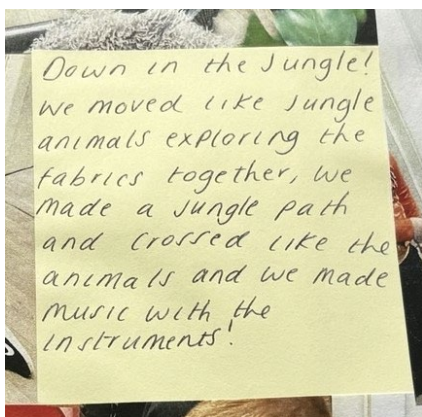 Down in the Jungle!
We moved like Jungle
animals exploring the
fabrics together, we
made a Jungle path
and crossed like the
animals and we made
music with the
instruments!